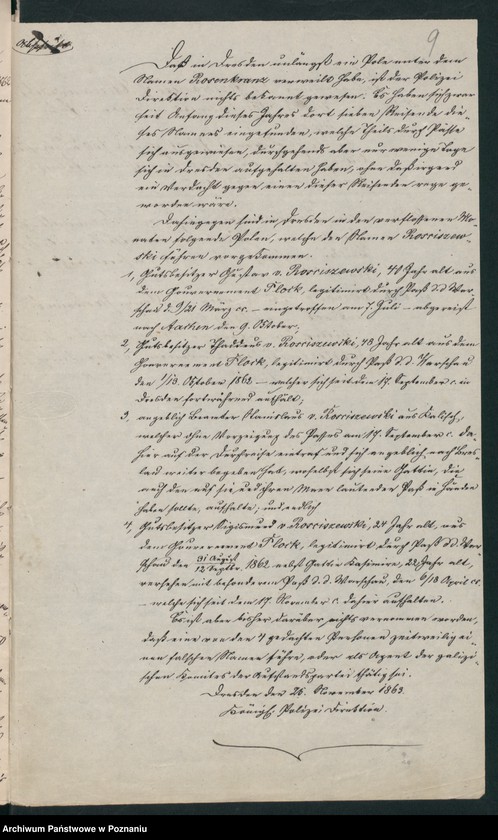 Abschrift
9
Daß in Dresden unlängst ein Pole unter dem
Namen Rosenkranz verweilt habe, ist der Polizei
Direktion nichts bekannt gewesen. Es haben sich zwar
seit Anfang dieses Jahres dort sieben Reisende die-
ses Namens eingefunden, welche theils durch Pässe
sich ausgewiesen, durchgehends aber nur wenige Tage
sich in Dresden aufgehalten haben, ohne daß irgend
ein Verdacht gegen einen dieser Reisenden rege ge-
worden wäre.
Dahingegen sind in Dresden in den verflossenen Mo-
naten folgende Polen, welche den Namen Rosciszew-
ski führen vorgekommen.
1, Gutsbesitzer Gustav v. Rosciszewski, 44 Jahr alt aus
dem Gouvernement Plock, legitimirt durch Paß d.d. War-
schau d. 9/21 März cr. – eingetroffen am 7. Juli – abgereist
nach Aachen den 9. Oktober;
2, Gutsbesitzer Thaddeus v. Rosciszewski, 48 Jahr alt aus dem
Gouvernement Plock, legitimirt durch Paß d.d. Warschau
den 1/13. Oktober 1862 – welcher sich seit dem 17. September c. in
Dresden fortwährend aufhält;
3, angeblich Beamter Stanislaus v. Rosciszewski aus Kalisch,
welcher ohne Vorzeigung des Passes am 17. September c. da-
hier auf der Durchreise eintraf und sich angeblich nach Bres-
lau weiter begeben hat, woselbst sich seine Gattin, die
auch den auf sie und ihren Mann lautenden Paß in Händen
haben sollte, aufhalte; und endlich
4, Gutsbesitzer Sigismund v. Rosciszewski, 24 Jahr alt, aus
dem Gouvernement Plock, legitimirt durch Paß d.d. War-
schau den 31 August / 12 Septbr. 1862, nebst Gattin Kasimira, 22 Jahr alt,
versehen mit besonderem Paß d.d. Warschau, den 6/18 April cr.
welche sich seit dem 17. November c. dahier aufhalten.
Es ist aber bisher darüber nichts vernommen worden,
daß eine von den 4 gedachten Personen zeitweilig ei-
nen falschen Namen führe, oder als Agent der galizi-
schen Komites der Aufstandspartei thätig sei.
Dresden den 26. November 1863.
Königl. Polizei Direktion.
Archiwum Państwowe w Poznaniu